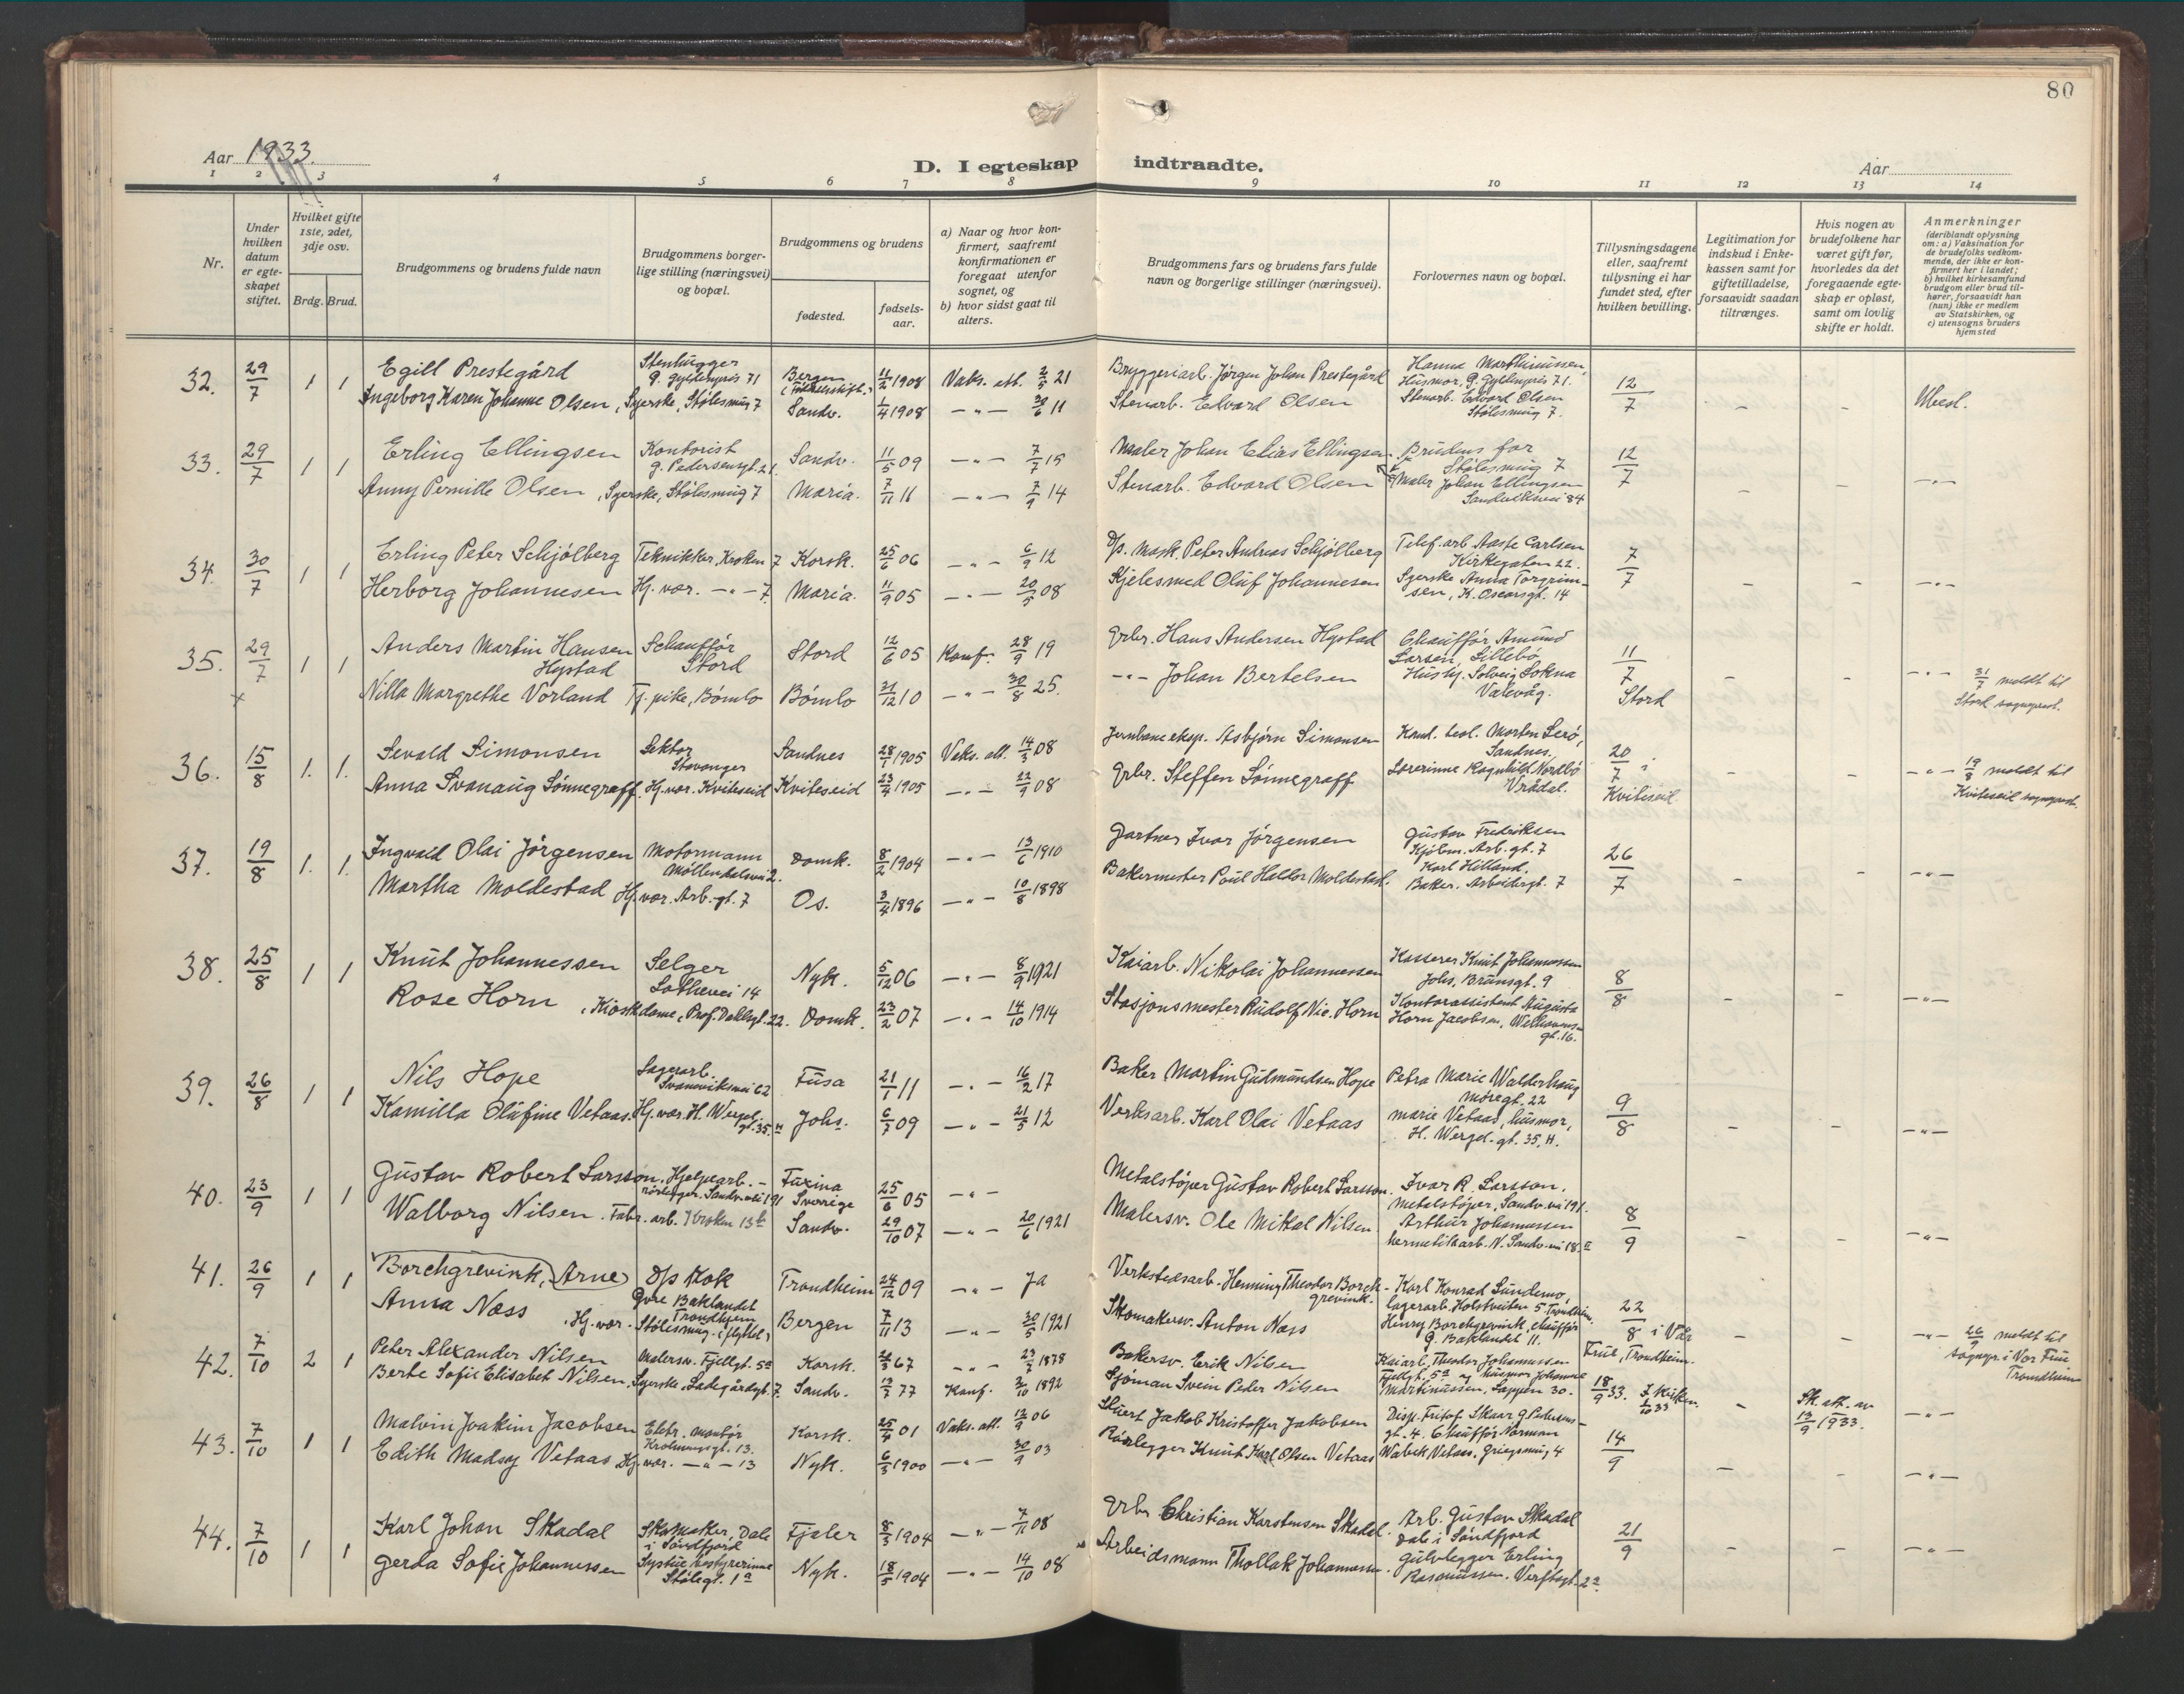 80
Aar 1933.
D. I egteskap indtraadte.
Aar
1 2 3 4 5 6 7 8 9 10 11 12 13 14
Nr.
Under hvilken datum er egteskapet stiftet.
Hvilket gifte 1ste, 2det, 3dje osv.
Brdg. Brud.
Brudgommens og brudens fulde navn
Brudgommens borgerlige stilling (næringsvei) og bopæl.
Brudgommens og brudens
fødested.
fødselsaar.
a) Naar og hvor konfirmert, saafremt konfirmationen er foregaat utenfor sognet, og
b) hvor sidst gaat til alters.
Brudgommens fars og brudens fars fulde navn og borgerlige stillinger (næringsvei).
Forlovernes navn og bopæl.
Tillysningsdagene eller, saafremt tillysning ei har fundet sted, efter hvilken bevilling.
Legitimation for indskud i Enkekassen samt for giftetilladelse, forsaavidt saadan tiltrænges.
Hvis nogen av brudefolkene har været gift før, hvorledes da det foregaaende egteskap er opløst, samt om lovlig skifte er holdt.
Anmerkninger
(deriblandt oplysning om: a) Vaksination for de brudefolks vedkommende, der ikke er konfirmert her i landet; b) hvilket kirkesamfund brudgom eller brud tilhører, forsaavidt han (hun) ikke er medlem av Statskirken, og c) utensogns bruders hjemsted
32. 29/7 1 1 Egill Prestegård Stenhugger Ø. Gyldenpris 71 Bergen 11/2 1908 Vaks. att. 2/5 21 Bryggeriarb. Jörgen Johan Prestegård Hanna Marthinussen, Husmor, Ø. Gyldenpris 71. 12/7 - -
Ingeborg Karen Johanne Olsen, Syerske, Stølesmug 7 Sandv. 1/4 1908 -"- 30/6 11 Stenarb. Edvard Olsen Stenarb. Edvard Olsen Stølesmug 7.
33. 29/7 1 1 Erling Ellingsen Kontorist G. Pedersensgt. 21. Sandv. 11/5 09 -"- 7/7 15 Maler Johan Elias Ellingsen Brudens far Stølesmug 7 12/7 - - -"-
Anny Pernille Olsen, Syerske, Stølesmug 7 Maria. 7/11 11 -"- 7/9 14 Stenarb. Edvard Olsen Maler Johan Ellingsen Sandviksvei 84
34. 30/7 1 1 Erling Peter Schjölberg Teknikker, Kroken 7 Korsk. 25/6 06 -"- 6/9 12 D/s. Mask. Peter Andreas Schjölberg Telef. arb. Aaste Carlsen Kirkegaten 22. 7/7 - - -"-
Herborg Johannesen Hj. vær. -"- 7. Maria. 11/9 05 -"- 20/5 08 Kjelesmed Oluf Johannesen Syerske Anna Torgrimsen, K. Oscarsgt. 14
35. 29/7 1 1 Anders Martin Hansen Hystad Schaufför Stord Stord 12/6 05 Konf. 28/9 19 Grbr. Hans Andersen Hystad Chaufför Amund Larsen Lillebö 11/7 Stord - - -"- 31/7 meldt til Stord sogneprest.
x Nilla Margrethe Vorland Tj. pike, Bömlo Bömlo 31/12 10 -"- 30/8 25. -"- Johan Bertelsen Hushj. Solveig Lokna Valevåg.
36. 15/8 1. 1. Sevald Simonsen Lektor Stavanger Sandnes 28/1 1905 Vaks. att. 14/3 08 Jernbaneeksp. Asbjörn Simonsen Kand. teol. Morten Lerö, Sandnes. 20/7 i Kviteseid - - -"- 19/8 meldt til Kviteseid sogneprest.
Anna Svanaug Sönnegraff, Hj. vær. Kviteseid Kviteseid 23/4 1905 -"- 22/9 08 Grbr. Steffen Sönnegraff Lærerinne Ragnhild Nordbö Vrådal.
37. 19/8 1. 1. Ingvald Olai Jörgensen Motormann Möllendalsvei 2. Domk. 8/2 1904 -"- 13/6 1910 Gartner Ivar Jörgensen Gustav Fredriksen Kjøbm. Arb. gt. 7 26/7 - - -"-
Martha Moldestad Hj. vær. Arb. gt. 7 Os. 3/4 1896 -"- 10/8 1898 Bakermester Poul Haldor Moldestad. Karl Hilland. Baker. Arbeidergt. 7
38. 25/8 1 1 Knut Johannessen Selger Lothevei 14 Nyk. 5/12 06 -"- 8/9 1921 Kaiarb. Nikolai Johannessen Kasserer Knut Johannessen Johs. Brunsgt. 9 8/8 - - -"-
Rose Horn, Kioskdame, Prof. Dahlsgt. 22. Domk. 23/2 07 -"- 14/10 1914 Stasjonsmester Rudolf Nic. Horn Kontorassistent Augusta Horn Jacobsen, Welhavensgt. 16.
39. 26/8 1 1 Nils Hope Lagerarb. Svaneviksvei 62 Fusa 21/1 11 -"- 16/2 17 Baker Martin Gudmundsen Hope Petra Marie Walderhaug Møregt. 22 9/8 - - -"-
Kamilla Olufine Vetaas. Hj. vær. H. Wergel. gt. 35. H Johs. 6/7 09 -"- 21/5 12 Verksarb. Karl Olai Vetaas Marie Vetaas, husmor, H. Wergel. gt. 35. H.
40. 23/9 1 1 Gustav Robert Larsson, Hjelpearb. - rørlegger. Sandv. vei 191 Sverige 25/6 05 -"- Metalstöper Gustav Robert Larsson. Ivar R. Larsson, Metalstöper, Sandv. vei 191. 8/9 - - -"-
Walborg Nilsen. Fabr. arb. Kroken 13b Sandv. 29/10 07 -"- 20/6 1921 Malersv. Ole Mikal Nilsen Arthur Johannessen hermetikarb. N. Sandv. vei 18
41. 26/9 1 1 Borchgrevink, Arne D/s Kok Øvre Baklandet Trondhjem Trondheim 24/12 09 -"- Ja Verkstedsarb. Henning Theodor Borchgrevink. Karl Konrad Sundemo, lagerarb. Holstveiten 5. Trondhjem. 22/8 i Vår Frue, Trondheim. - - -"- 26/9 meldt til sognepr. i Vor Frue Trondheim
Anna Næss, Hj. vær. Stølesmug. Bergen 7/11 13 -"- 30/5 1921 Skomakersv. Anton Næss Henry Borchgrevink, chauffør Ø. Baklandet 11.
42. 7/10 2 1 Peter Alexander Nilsen Malersv. Fjellgt. 5a Korsk. 67 -"- 23/7 1878 Bakersv. Erik Nilsen Kaiarb. Theodor Johannessen Fjellgt. 5a og husmor Johanne Martinussen, Lappen 30. 18/9 33. - Sk. att. av 13/9 1933. -"-
Berte Sofie Elisabet Nilsen, Syerske, Ladegårdsgt. 7. Sandv. 13/3 77 Konf. 2/10 1892 Sjöman Svein Peder Nilsen
43. 7/10 1 1 Malvin Joakim Jacobsen Elektr. montör Krohnengsgt. 13. Korsk. 25/4 01 Vaks. att. 12/9 06 Stuert Jakob Kristoffer Jakobsen Disp. Fritof Skaar G. Pedersensgt. 4. Chauffør Norman 14/9 - - -"-
Edith Madsy Vetaas Hj. vær. -"- 13 Nyk. 6/3 1900 -"- 30/9 03 Rörlegger Knut Karl Olsen Vetaas Wabek Vetaas. Griegsmug 4
44. 7/10 1 1 Karl Johan Skadal Skomaker, Dale i Söndfjord Fjaler 8/3 1904 -"- 7/11 08 Grbr. Christian Karstensen Skadal. Arb. Gustav Skadal Dale i Söndfjord 21/9 - - -"-
Gerda Sofie Johannessen Systuebestyrerinne Stølegt. 1a Nyk. 18/5 1904 -"- 14/10 08 Arbeidsmann Thollak Johannessen. Gulvlegger Erling Rasmussen. Verftsgt. 2a.